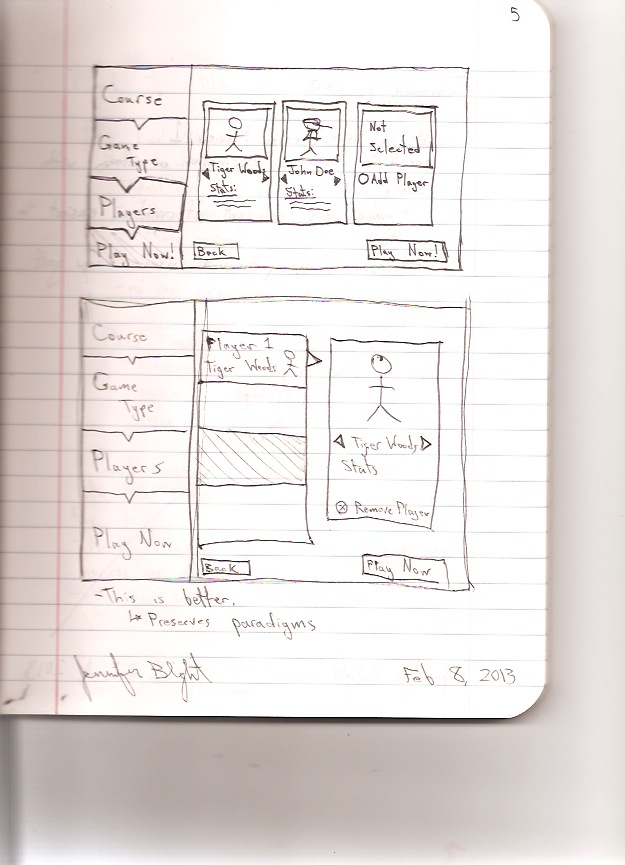 5
Course
Game
Type
Players
Play Now!
Tiger Woods
Stats:
John Doe
Stats:
Not
Selected
Add Player
Back
Play Now!
Course
Game
Type
Players
Play Now
Player 1
Tiger Woods
Tiger Woods
Stats
Remove Player
Back
Play Now
- This is better.
↳ Preserves paradigms
Jennifer
Feb 8, 2013